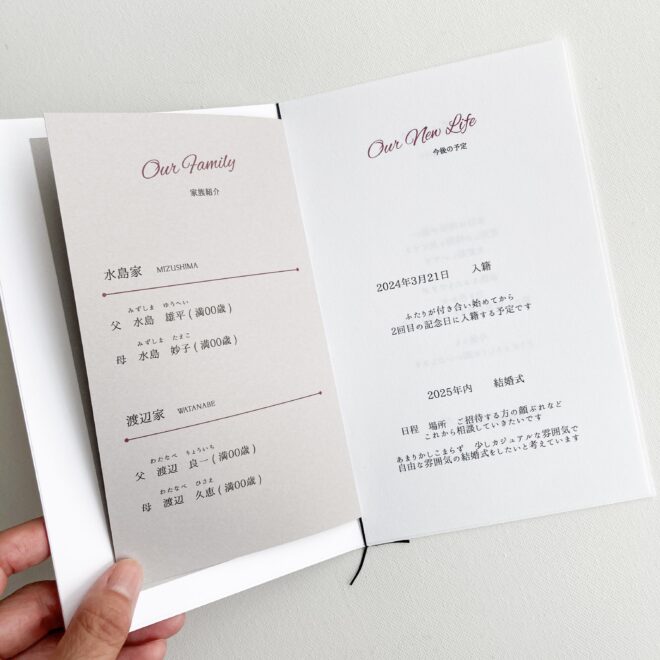 Our Family
家族紹介
水島家 MIZUSHIMA
みずしま ゆうへい
父 水島 雄平 ( 満00歳 )
みずしま たまこ
母 水島 妙子 ( 満00歳 )
渡辺家 WATANABE
わたなべ りょういち
父 渡辺 良一 ( 満00歳 )
わたなべ ひさえ
母 渡辺 久恵 ( 満00歳 )
Our New Life
今後の予定
2024年3月21日 入籍
ふたりが付き合い始めてから
2回目の記念日に入籍する予定です
2025年内 結婚式
日程 場所 ご招待する方の顔ぶれなど
これから相談していきたいです
あまりかしこまらず 少しカジュアルな雰囲気で
自由な雰囲気の結婚式をしたいと考えています